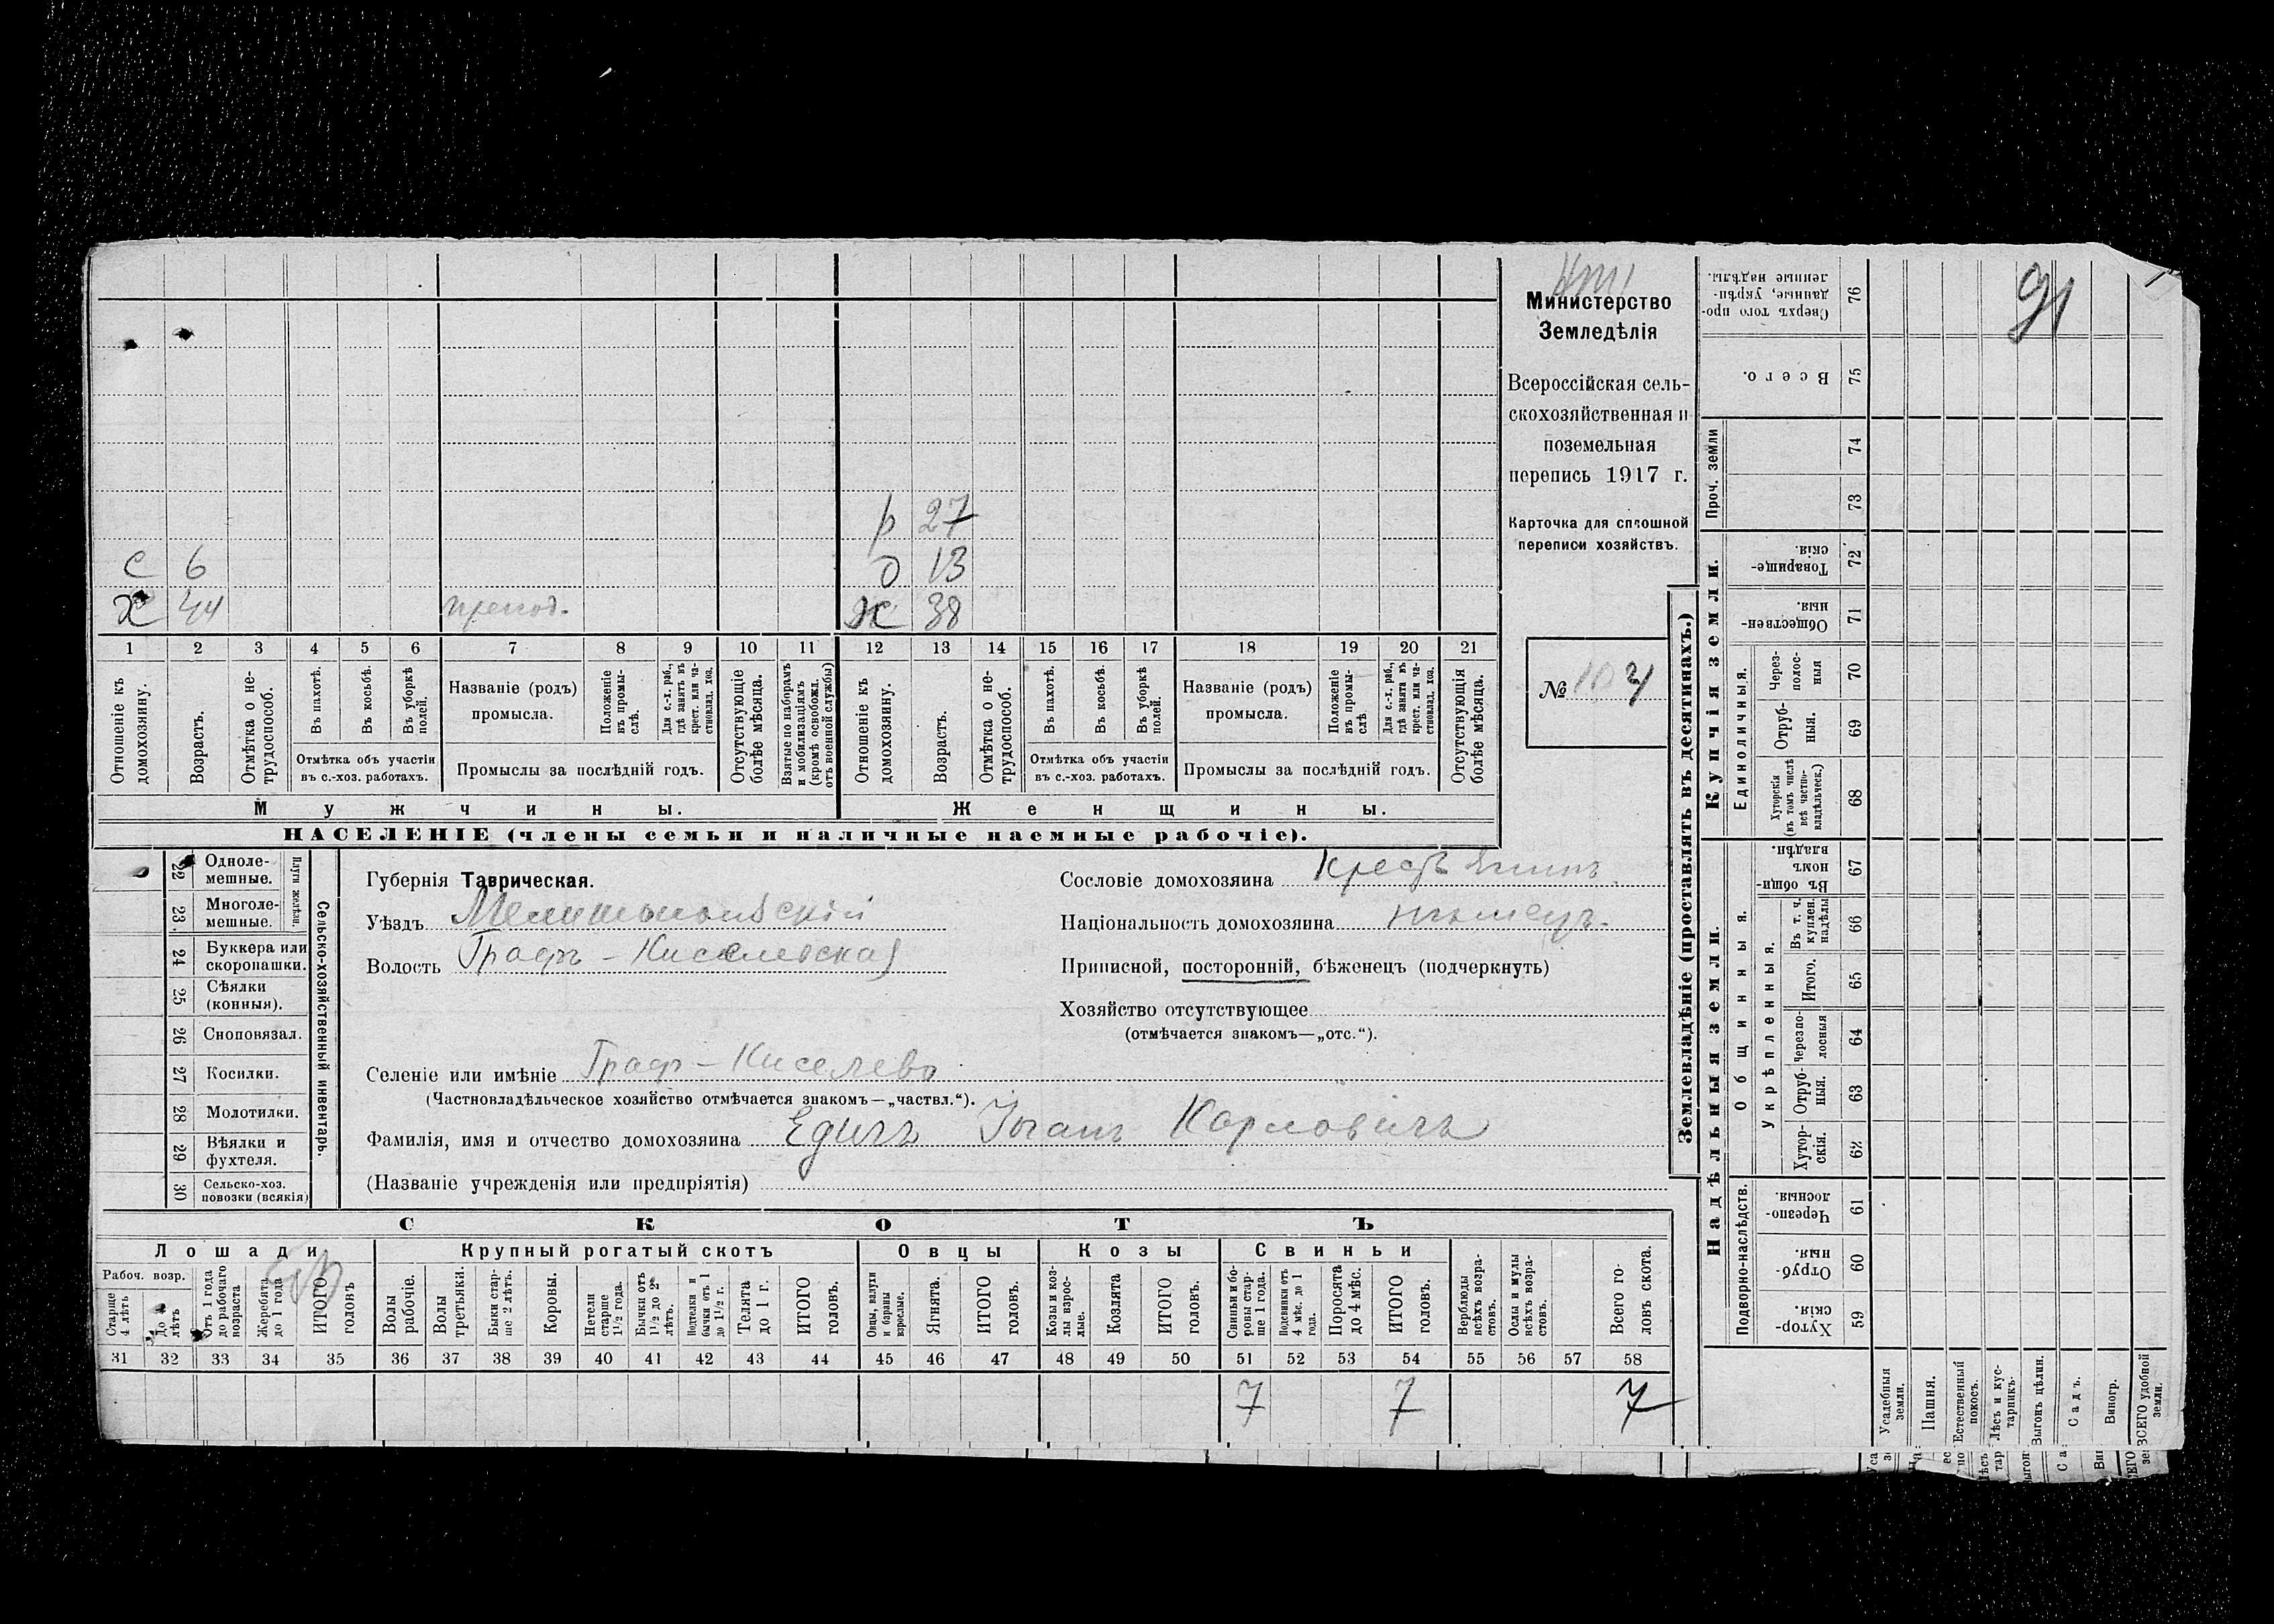 р 27
с 6 о 13
х 44 препод. ж 38
1 2 3 4 5 6 7 8 9 10 11 12 13 14 15 16 17 18 19 20 21
Отношеніе къ домохозяину.
Возрастъ.
Отмѣтка о не-
трудоспособ.
Въ пахотѣ.
Въ косьбѣ.
Въ уборкѣ
полей.
Отмѣтка объ участіи
въ с.-хоз. работахъ.
Названіе (родъ)
промысла.
Положеніе
въ промы-
слѣ.
Для с.-х. раб.,
гдѣ занятъ въ
крест. или ча-
стновлад. хоз.
Промыслы за послѣдній годъ.
Отсутствующіе
болѣе мѣсяца.
Взятые по наборамъ
и мобилизаціямъ
(кромѣ освобожд.
отъ военной службы)
Отношеніе къ
домохозяину.
Возрастъ.
Отмѣтка о не-
трудоспособ.
Въ пахотѣ.
Въ косьбѣ.
Въ уборкѣ
полей.
Отмѣтка объ участіи
въ с.-хоз. работахъ.
Названіе (родъ)
промысла.
Положеніе
въ промы-
слѣ
Для с.-х. раб.,
гдѣ занята въ
крест. или ча-
стновлад. хоз.
Промыслы за послѣдній годъ.
Отсутствующія
болѣе мѣсяца.
Мужчины. Женщины.
НАСЕЛЕНІЕ (члены семьи и наличные наемные рабочіе).
Министерство
Земледѣлія
Всероссійская сель-
скохозяйственная и
поземельная
перепись 1917 г.
Карточка для сплошной
переписи хозяйствъ.
№ 104
22 Одноле-
мешные.
23 Многоле-
мешные.
Плуги желѣзн.
24 Буккера или
скоропашки.
25 Сѣялки
(конныя).
26 Сноповязал.
27 Косилки.
28 Молотилки.
29 Вѣялки и
фухтеля.
30 Сельско-хоз.
повозки (всякія)
Сельско-хозяйственный инвентарь.
Губернія Таврическая.
Уѣздъ Мелитопольскій
Волость Графъ-Киселевская
Сословіе домохозяина Крестьянинъ.
Національность домохозяина нѣмецъ.
Приписной, посторонній, бѣженецъ (подчеркнуть)
Хозяйство отсутствующее
(отмѣчается знакомъ—„отс.“).
Селеніе или имѣніе Граф-Киселево
(Частновладѣльческое хозяйство отмѣчается знакомъ—„частвл.“).
Фамилія, имя и отчество домохозяина Едигъ Іоганъ Карловичъ
(Названіе учрежденія или предпріятія)
СКОТЪ
Лошади Крупный рогатый скотъ Овцы Козы Свиньи
Рабоч. возр.
Старше
4 лѣтъ
До 4
лѣтъ
Отъ 1 года
до рабочаго
возраста
Жеребята
до 1 года
ИТОГО
головъ
Волы
рабочіе.
Волы
третьяки.
Быки стар-
ше 2 лѣтъ.
Коровы.
Нетели
старше
1½ года.
Бычки отъ
1½ до 2
лѣтъ.
Подтелки и
бычки отъ 1
до 1½ г.
Телята
до 1 г.
ИТОГО
головъ.
Овцы, валухи
и бараны
взрослые.
Ягнята.
ИТОГО
головъ.
Козы и коз-
лы взрос-
лые.
Козлята
ИТОГО
головъ.
Свиньи и бо-
ровы стар-
ше 1 года.
Подсвинки отъ
4 мѣс. до 1
года.
Поросята
до 4 мѣс.
ИТОГО
головъ.
Верблюды
всѣхъ возра-
стовъ.
Ослы и мулы
всѣхъ возра-
стовъ.
Всего го-
ловъ скота.
31 32 33 34 35 36 37 38 39 40 41 42 43 44 45 46 47 48 49 50 51 52 53 54 55 56 57 58
7 7 7
Землевладѣніе (проставлять въ десятинахъ.)
91
Сверхъ того про-
данные, укрѣп-
ленные надѣлы. 76
Всего. 75
Проч. земли 74
73
Купчія земли.
Товарище-
скія. 72
Обществен-
ныя. 71
Единоличныя.
Через-
полос-
ныя 70
Отруб-
ныя. 69
Хуторскія
(въ томъ числѣ
всѣ частно-
владѣльческ.) 68
Надѣльныя земли.
Общинныя.
Въ общи-
номъ
владѣн. 67
Укрѣпленныя.
Въ т. ч.
куплен.
надѣлы 66
Итого. 65
Черезпо-
лосныя 64
Отруб-
ныя. 63
Хутор-
скія. 62
Подворно-наслѣдств.
Черезпо-
лосныя. 61
Отруб-
ныя. 60
Хутор-
скія. 59
Усадебныя
земли.
Пашня.
Естественный
покосъ.
Лѣсъ и кус-
тарникъ.
Выгонъ цѣлин.
Садъ.
Виногр.
ВСЕГО удобной
земли.